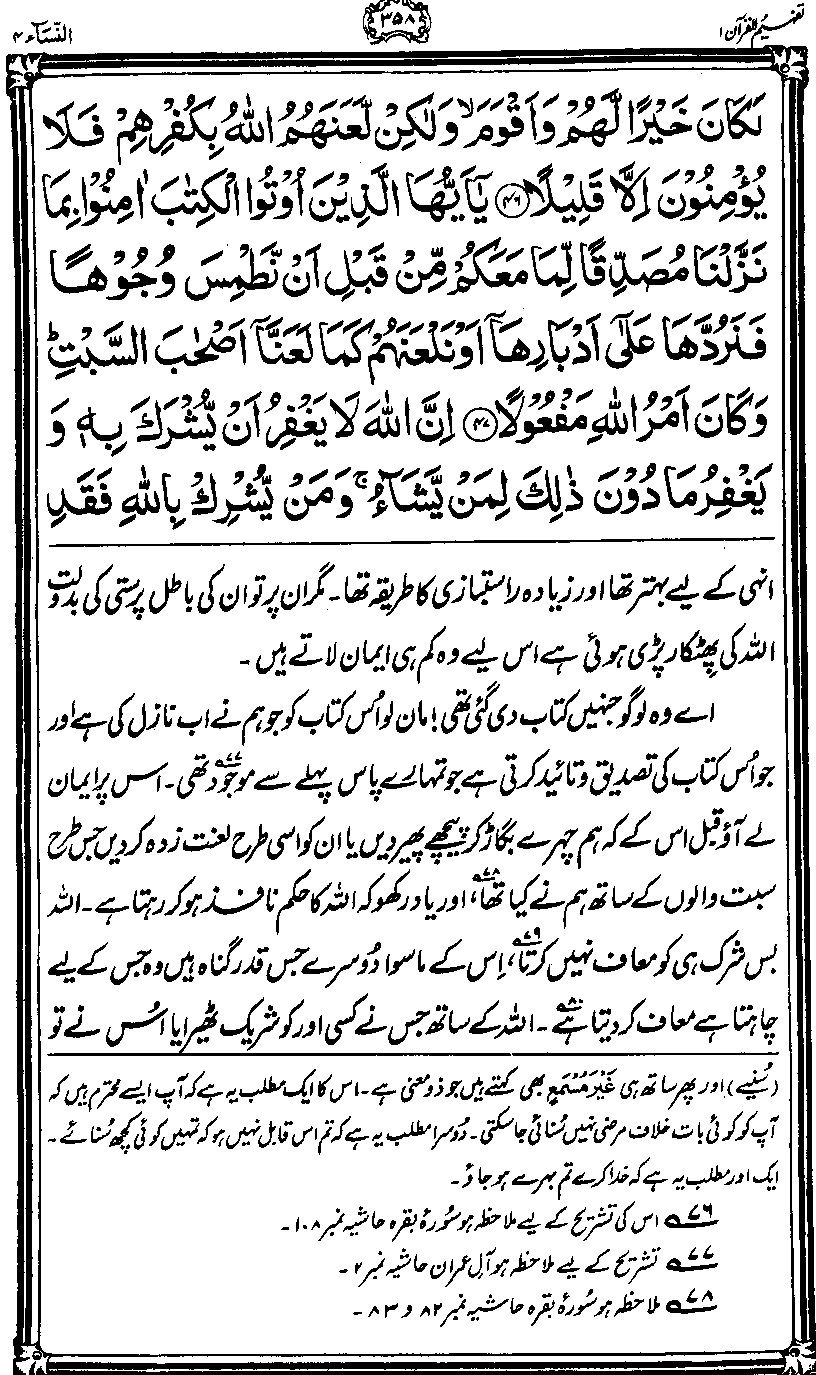 تفہیم القرآن ۱
۳۵۸
النسآء ۴
لَكَانَ خَيْرًا لَّهُمْ وَاَقْوَمَ ۙ وَلٰكِنْ لَّعَنَهُمُ اللّٰهُ بِكُفْرِهِمْ فَلَا
يُؤْمِنُوْنَ اِلَّا قَلِيْلًا ﴿۴۶﴾ يٰۤاَيُّهَا الَّذِيْنَ اُوْتُوا الْكِتٰبَ اٰمِنُوْا بِمَا
نَزَّلْنَا مُصَدِّقًا لِّمَا مَعَكُمْ مِّنْ قَبْلِ اَنْ نَّطْمِسَ وُجُوْهًا
فَنَرُدَّهَا عَلٰۤى اَدْبَارِهَاۤ اَوْ نَلْعَنَهُمْ كَمَا لَعَنَّاۤ اَصْحٰبَ السَّبْتِ ؕ
وَكَانَ اَمْرُ اللّٰهِ مَفْعُوْلًا ﴿۴۷﴾ اِنَّ اللّٰهَ لَا يَغْفِرُ اَنْ يُّشْرَكَ بِهٖ وَ
يَغْفِرُ مَا دُوْنَ ذٰلِكَ لِمَنْ يَّشَآءُ ۚ وَمَنْ يُّشْرِكْ بِاللّٰهِ فَقَدِ
انہی کے لیے بہتر تھا اور زیادہ راستبازی کا طریقہ تھا۔ مگر ان پر تو ان کی باطل پرستی کی بدولت
اللہ کی پھٹکار پڑی ہوئی ہے اس لیے وہ کم ہی ایمان لاتے ہیں۔
اے وہ لوگو جنہیں کتاب دی گئی تھی! مان لو اُس کتاب کو جو ہم نے اب نازل کی ہے اور
جو اُس کتاب کی تصدیق و تائید کرتی ہے جو تمہارے پاس پہلے سے موجود تھی۷۷۔ اس پر ایمان
لے آؤ قبل اس کے کہ ہم چہرے بگاڑ کر پیچھے پھیر دیں یا ان کو اسی طرح لعنت زدہ کر دیں جس طرح
سبت والوں کے ساتھ ہم نے کیا تھا۷۸، اور یاد رکھو کہ اللہ کا حکم نافذ ہو کر رہتا ہے۔ اللہ
بس شرک ہی کو معاف نہیں کرتا۷۹، اِس کے ماسوا دُوسرے جس قدر گناہ ہیں وہ جس کے لیے
چاہتا ہے معاف کر دیتا ہے۸۰۔ اللہ کے ساتھ جس نے کسی اور کو شریک ٹھیرایا اُس نے تو
(سُنیے) اور پھر ساتھ ہی غَیْرَ مُسْمَعٍ بھی کہتے ہیں جو ذو معنی ہے۔ اس کا ایک مطلب یہ ہے کہ آپ ایسے محترم ہیں کہ
آپ کو کوئی بات خلاف مرضی نہیں سُنائی جا سکتی۔ دُوسرا مطلب یہ ہے کہ تم اس قابل نہیں ہو کہ تمہیں کوئی کچھ سُنائے۔
ایک اور مطلب یہ ہے کہ خدا کرے تم بہرے ہو جاؤ۔
۷۶ اس کی تشریح کے لیے ملاحظہ ہو سُورۂ بقرہ حاشیہ نمبر ۱۰۸۔
۷۷ تشریح کے لیے ملاحظہ ہو آل عمران حاشیہ نمبر ۲۔
۷۸ ملاحظہ ہو سُورۂ بقرہ حاشیہ نمبر ۸۲ و ۸۳۔